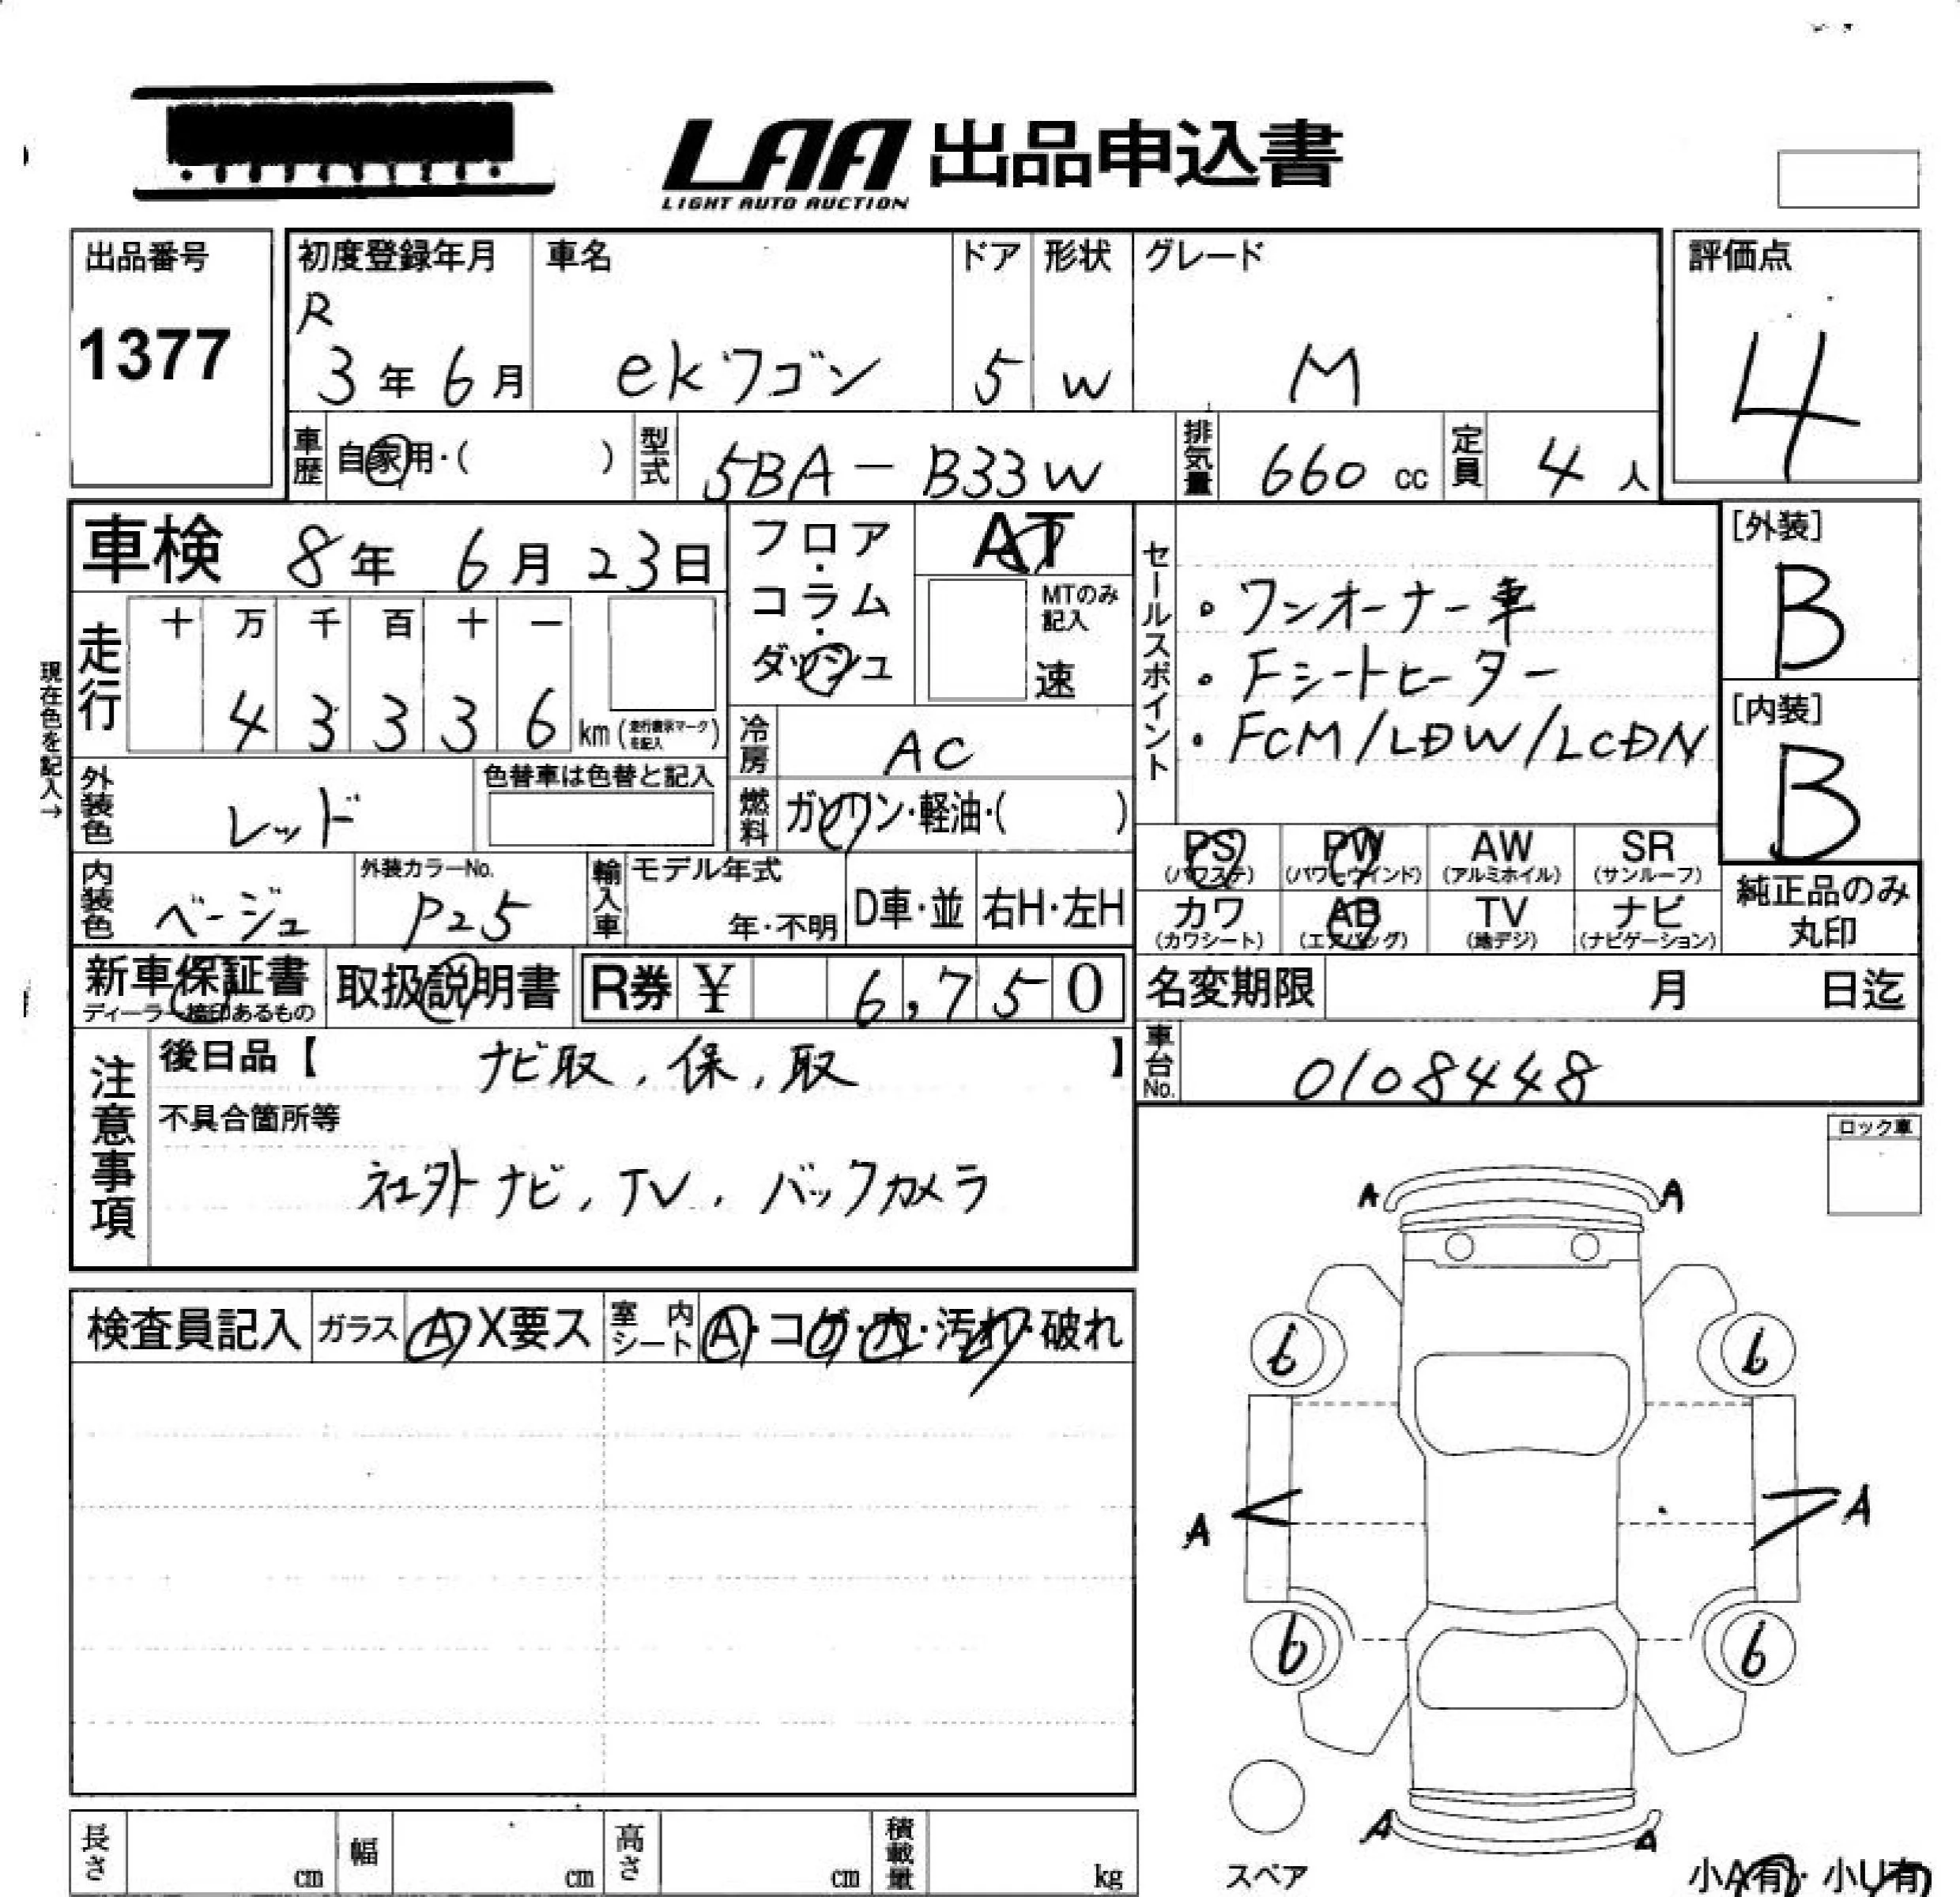 LAA 出品申込書
LIGHT AUTO AUCTION
出品番号
1377
初度登録年月
R
3年6月
車名
ekワゴン
ドア
5
形状
W
グレード
M
評価点
4
車歴
自家用・( )
型式
5BA-B33W
排気量
660 cc
定員
4 人
車検 8年 6月 23日
フロア・コラム・ダッシュ
AT
MTのみ記入
速
セールスポイント
・ワンオーナー車
・Fシートヒーター
・FCM/LDW/LCDN
[外装]
B
[内装]
B
現在色を記入→
走行
十 万 千 百 十 一
4 3 3 3 6 km (走行表示マークを記入)
冷房
AC
燃料
ガソリン・軽油・( )
外装色
レッド
色替車は色替と記入
内装色
ベージュ
外装カラーNo.
P25
輸入車
モデル年式
年・不明
D車・並
右H・左H
PS
(パワステ)
PW
(パワーウインド)
AW
(アルミホイル)
SR
(サンルーフ)
カワ
(カワシート)
AB
(エアバッグ)
TV
(地デジ)
ナビ
(ナビゲーション)
純正品のみ
丸印
新車保証書
ディーラー捺印あるもの
取扱説明書
R券 ¥ 6,750
名変期限 月 日迄
車台No.
0108448
注意事項
後日品【 ナビ取, 保, 取 】
不具合箇所等
社外ナビ, TV, バックカメラ
ロック車
検査員記入
ガラス
A X要ス
室内シート
A・コゲ・穴・汚れ・破れ
A A
6 6
A A
6 6
A A
スペア
小A有・小U有
長さ cm
幅 cm
高さ cm
積載量 kg